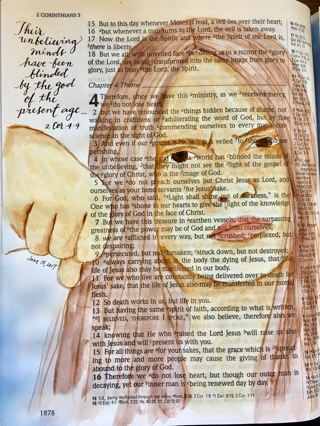 2 CORINTHIANS 3
Their
unbelieving
minds
have been
blinded
by the god
of the
present age...
2 Cor 4:4
June 15, 2017
15 But to this day whenever Moses is read, a veil lies over their heart;
16 but whenever a man turns to the Lord, the veil is taken away.
17 Now the Lord is the Spirit, and where the Spirit of the Lord is,
there is liberty.
18 But we all with unveiled face beholding as in a mirror the glory
of the Lord, are being transformed into the same image from glory to
glory, just as from the Lord, the Spirit.
4 Therefore, since we have this ministry, as we received mercy,
we do not lose heart,
2 but we have renounced the things hidden because of shame, not
walking in craftiness or adulterating the word of God, but by the
manifestation of truth commending ourselves to every man's
3 And even if our
perishing,
4 in whose case the god of this world has blinded the minds of the
unbelieving, that they might not see the light of the gospel
of the glory of Christ, who is the image of God.
5 For we do not preach ourselves but Christ Jesus as Lord, and
ourselves as your bond servants for Jesus'
6 For God, who said, "Light shall shine out of darkness," is the
One who has shone in our hearts to give the light of the knowledge
of the glory of God in the face of Christ.
7 But we have this treasure in earthen vessels,
greatness of the power may be of God and not from ourselves;
8 we are afflicted in every way, but not crushed; perplexed, but
not despairing;
persecuted, but not forsaken; struck down, but not destroyed;
10 always carrying about in the body the dying of Jesus, that the
life of Jesus also may be manifested in our body.
11 For we who live are constantly being delivered over to death for
Jesus' sake, that the life of Jesus also may be manifested in our mortal
flesh.
12 So death works in us, but life in you.
13 But having the same spirit of faith, according to what is written,
"I BELIEVED, THEREFORE I SPOKE," we also believe, therefore also we
speak;
14 knowing that He who raised the Lord Jesus will raise us also
with Jesus and will present us with you.
15 For all things are for your sakes, that the grace which is spread-
ing to more and more people may cause the giving of thanks to
abound to the glory of God.
16 Therefore we do not lose heart, but though our outer man is
decaying, yet our inner man is being renewed day by day.
1878